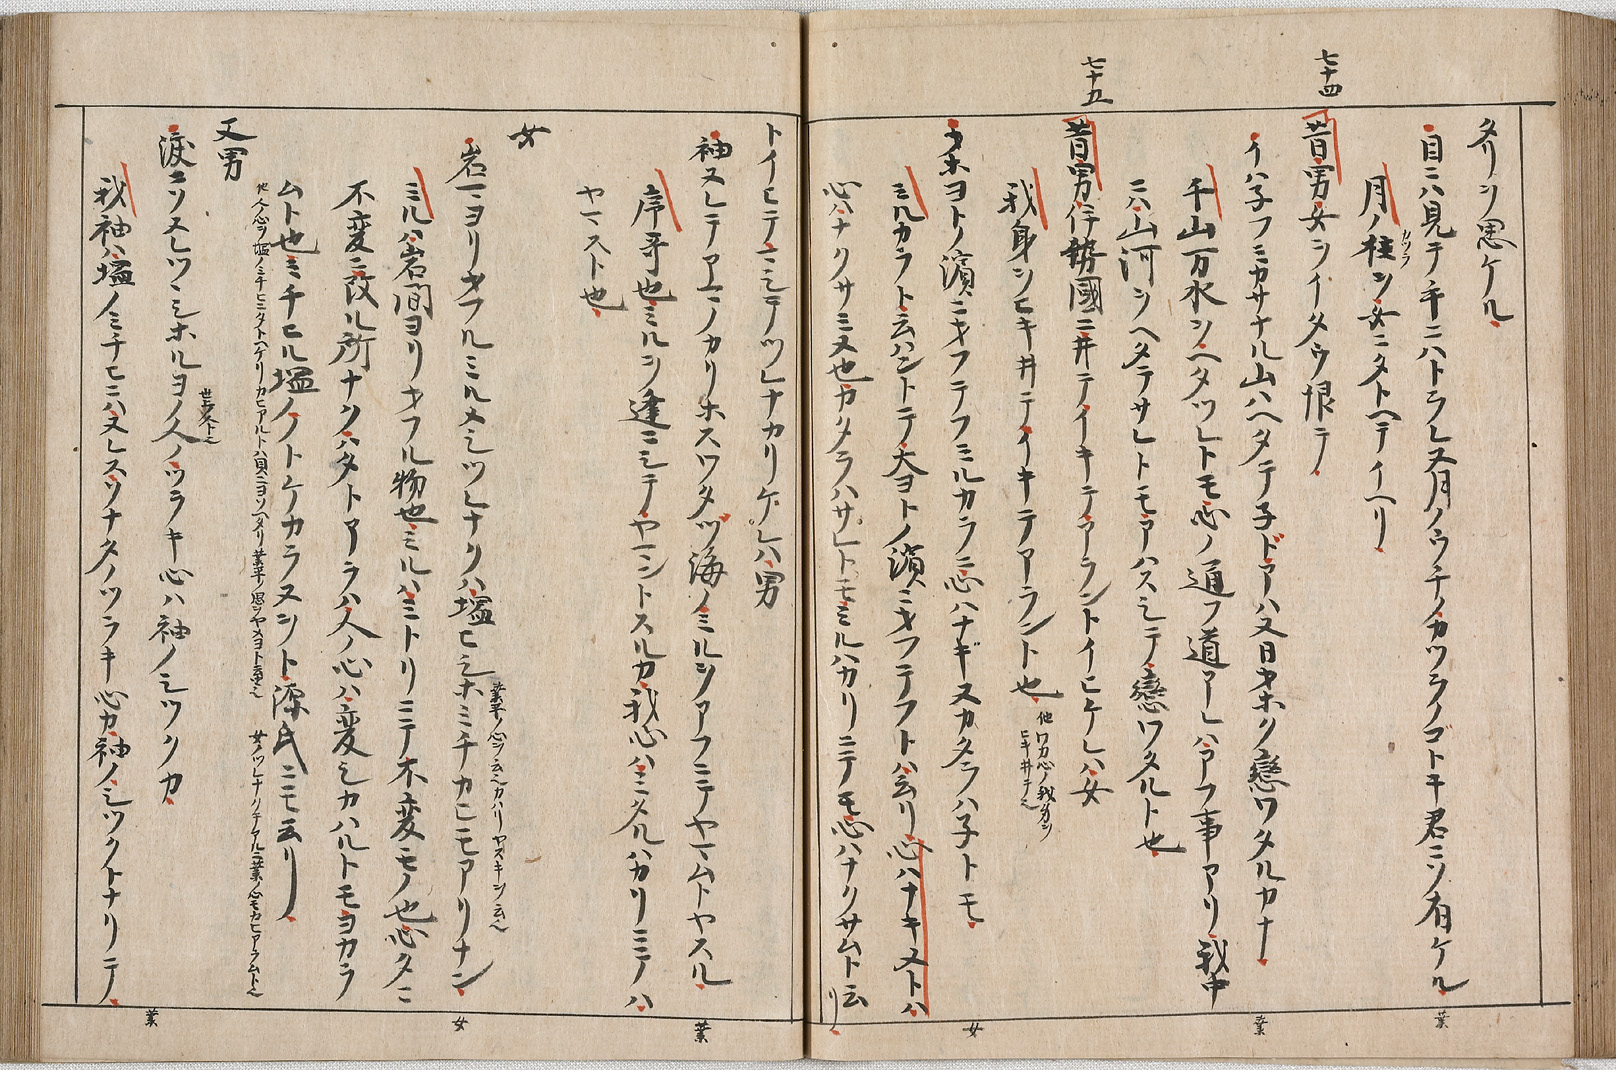 タリシ思ケル
目ニハ見テ手ニハトラレヌ月ノウチノカツラノゴトキ君ニソ有ケル
業
月ノ桂ヲ女ニタトヘテイヘリ
カツラ
七十四
昔男女ヲイタウ恨テ
イハ子フミカサナル山ハヘタテ子ドアハヌ日オホク戀ワタルカナ
業
千山万水ヲヘタツレトモ心ノ通フ道アレハアフ事アリ我中
ニハ山河ヲヘタテサレトモアハスシテ戀ワタルト也
七十五
昔男伊勢國ニ井テイキテアラントイヒケレハ女
我身ヲヒキ井テイキテアラント也
他
ワカ心ノ我カヲ
ヒキ井テ也
オホヨトノ濱ニオフテフミルカラニ心ハナギヌカタラハ子トモ
女
ミルカラト云ハントテ大ヨトノ濱ニオフテフトハ云リ心ハナキヌトハ
心ハナクサミヌ也カタラハサレトモミルハカリニテモ心ハナクサムト云
リ
トイヒテマシテツレナカリケレハ男
袖ヌレテアマノカリホスワタヅ海ノミルヲアフニテヤマムトヤスル
業
序哥也ミルヲ逢ニシテヤマントスルカ我心ハミタルハカリニテハ
ヤマスト也
女
岩マヨリオフルミルメシツレナクハ塩ヒシホミチカヒモアリナン
女
業平ノ心ヲ云也カハリヤスキヲ云也
ミルハ岩間ヨリオフル物也ミルハミトリニテ不変モノ也心タニ
不変ニ改ル所ナクハタトアラハ人ノ心ハ変シカハルトモヨカラ
ムト也ミチヒル塩ノトケカラヌヲト源氏ニモ云リ
他人ノ心ヲ塩ノミチヒニタトヘタリカヒアルトハ貝ニヨソヘタリ業平ノ思ヲヤメヨト云心也
女ノツレナクテアルニ業ノ心モカヒアラムト也
又男
涙ニソヌレツヽシホルヨノ人ノツラキ心ハ袖ノシツクカ
業
世上ノ人ト也
我袖ハ塩ノミチヒニハヌレスソナタノツラキ心カ袖ノシツクトナリテ